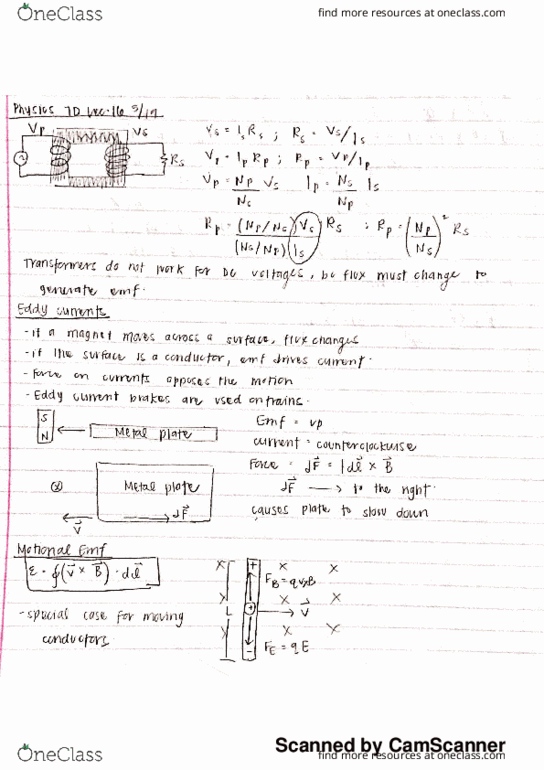 OneClass
find more resources at oneclass.com
Physics 7D Lec-16 5/19
Vp Vs
Rs
Vs = IsRs ; Rs = Vs/Is
Vp = IpRp ; Rp = Vp/Ip
Vp = Np/Ns Vs Ip = Ns/Np Is
Rp = (Np/Ns)(Vs)/(Ns/Np)(Is) Rs ; Rp = (Np/Ns)² Rs
Transformers do not work for DC voltages, bc flux must change to
generate emf.
Eddy currents
- if a magnet moves across a surface, flux changes
- if the surface is a conductor, emf drives current.
- Force on currents opposes the motion
- Eddy current brakes are used on trains.
S
N
Metal plate
Emf = up
current = counterclockwise
Force = dF⃗ = Idl⃗ × B⃗
dF⃗ → to the right.
causes plate to slow down
Metal plate
dF⃗
v⃗
Motional Emf
ε = ∮(v⃗ × B⃗) · dl⃗
- special case for moving
conductors.
x + x x
FB = qvB
x L + v⃗ x x
x x x
- FE = qE
Scanned by CamScanner
OneClass
find more resources at oneclass.com